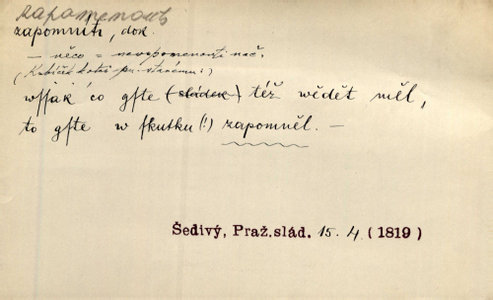 zapomenouti
zapomníti, dok.
– něco = nevzpomenouti nač.
(Kubíček kotes pu staršímu:)
wſſak co gſte (sládek) též wědět měl,
to gſte w ſkutku(!) zapomněl. –
Šedivý, Praž.slád. 15. 4 (1819)